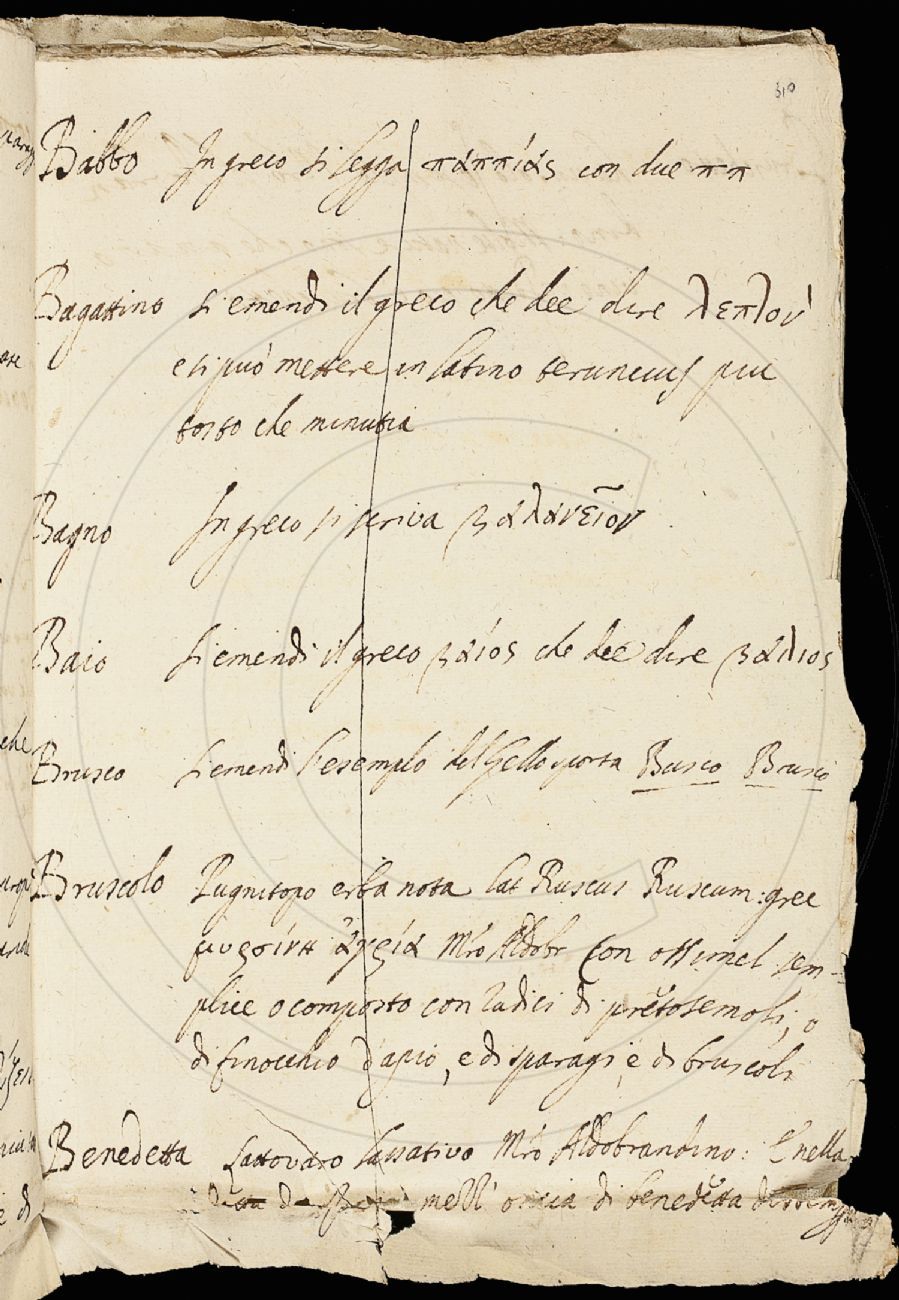 310
Babbo In greco si legga παππίάς con due ππ
Bagattino si emendi il greco che dee dire λεπτον
e si può mettere in latino teruncius piu
tosto che minutia
Bagno In greco si scriva βαλανεῖον
Baio Si emendi il greco βαίος che dee dire βάλιος
Brusco Si emendi l'esempio del Gello sposta Busco Brusco
Bruscolo Pugnitopo erba nota lat Ruscus Ruscum: grec
μυρσίνη ἀγρία Mro Aldobr Con ossimel sem-
plice o composto con radici di pretosemoli, o
di finocchio d'apio, e di sparagi, e di bruscoli
Benedetta Lattovaro lassativo Mro Aldobrandino: E nella
metti oncia di benedetta